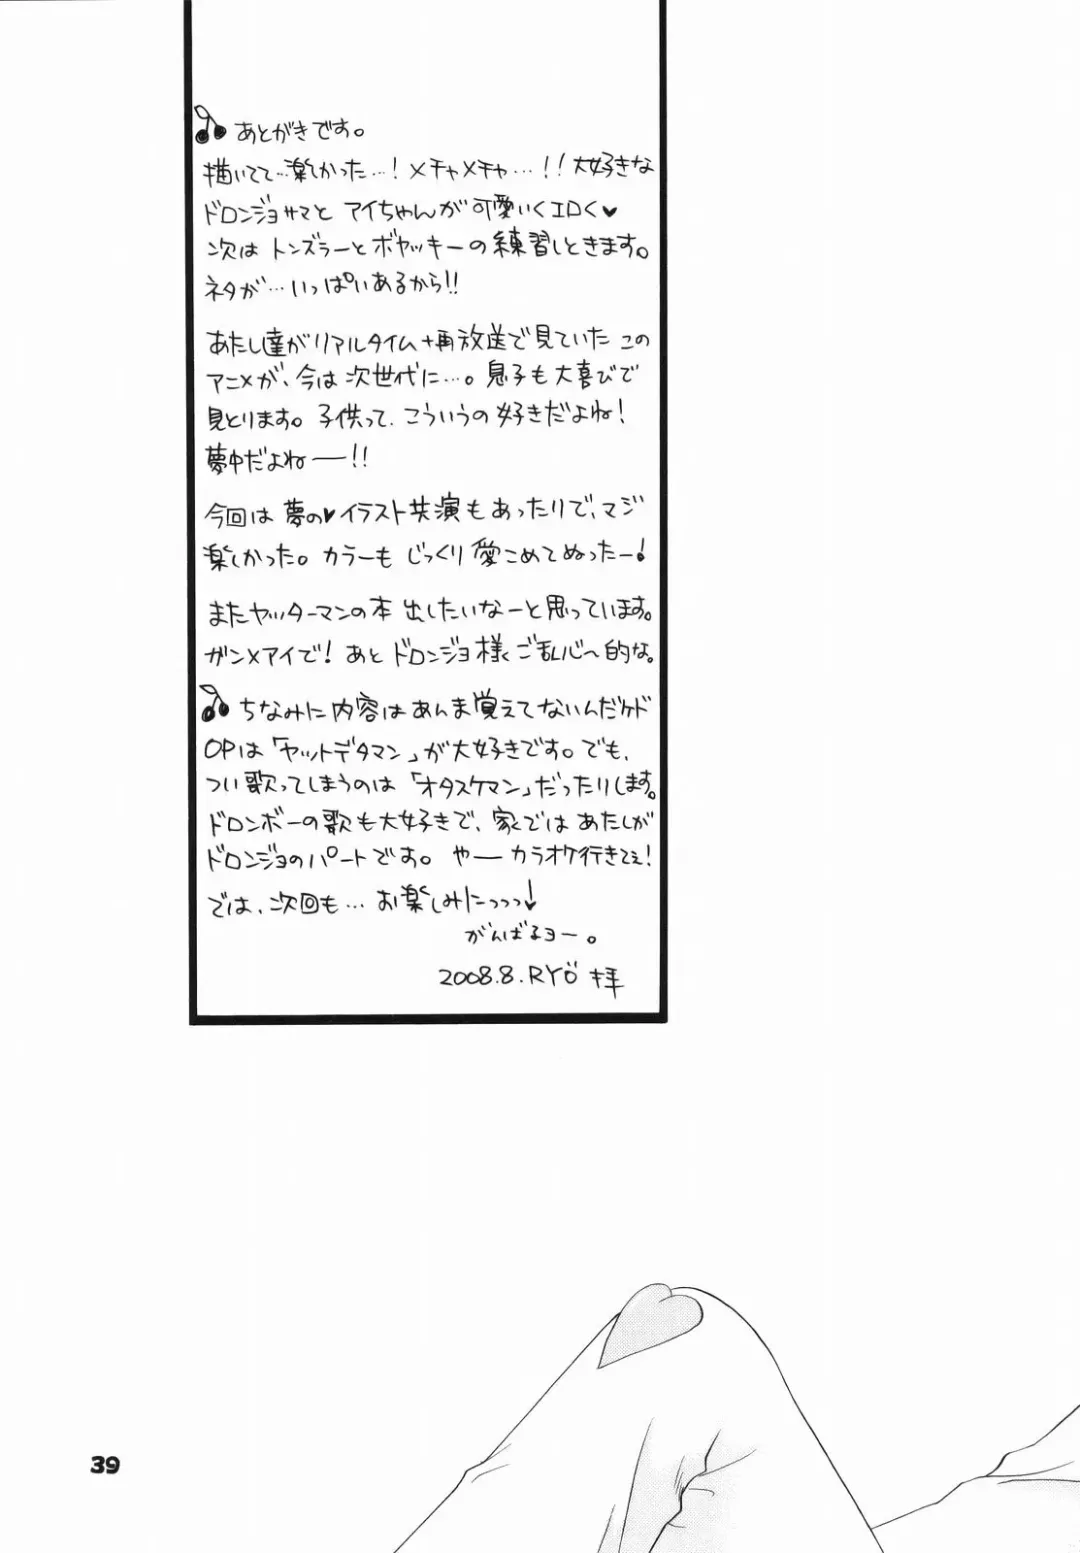 あとがきです。
描いてて…楽しかった…！メチャメチャ…！！大好きな
ドロンジョサマと アイちゃんが可愛いくエロく♥
次は トンズラーとボヤッキーの練習しときます。
ネタが…いっぱいあるから！！
あたし達がリアルタイム+再放送で見ていた この
アニメが、今は 次世代に…。息子も大喜びで
見とります。子供って、こういうの好きだよね！
夢中だよねー！！
今回は 夢の♥イラスト共演もあったりで、マジ
楽しかった。カラーも じっくり 愛こめてぬったー！
またヤッターマンの本 出したいなーと思っています。
ガン×アイで！あと ドロンジョ様ご乱心〜的な。
ちなみに内容はあんま覚えてないんだケド
OPは「ヤットデタマン」が大好きです。でも、
つい歌ってしまうのは「オタスケマン」だったりします。
ドロンボーの歌も大好きで、家では あたしが
ドロンジョのパートです。 やー カラオケ行きてぇ！
では、次回も… お楽しみにっっっ！
がんばるヨー。
2008.8.RYÖ 拝
39